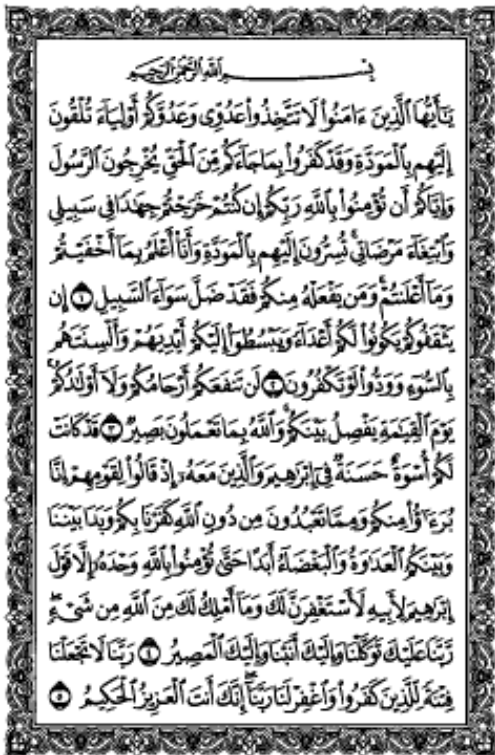 بِسْمِ اللَّهِ الرَّحْمَٰنِ الرَّحِيمِ
يَٰٓأَيُّهَا ٱلَّذِينَ ءَامَنُوا۟ لَا تَتَّخِذُوا۟ عَدُوِّى وَعَدُوَّكُمْ أَوْلِيَآءَ تُلْقُونَ
إِلَيْهِم بِٱلْمَوَدَّةِ وَقَدْ كَفَرُوا۟ بِمَا جَآءَكُم مِّنَ ٱلْحَقِّ يُخْرِجُونَ ٱلرَّسُولَ
وَإِيَّاكُمْ أَن تُؤْمِنُوا۟ بِٱللَّهِ رَبِّكُمْ إِن كُنتُمْ خَرَجْتُمْ جِهَٰدًا فِى سَبِيلِى
وَٱبْتِغَآءَ مَرْضَاتِى ۚ تُسِرُّونَ إِلَيْهِم بِٱلْمَوَدَّةِ وَأَنَا۠ أَعْلَمُ بِمَآ أَخْفَيْتُمْ
وَمَآ أَعْلَنتُمْ ۚ وَمَن يَفْعَلْهُ مِنكُمْ فَقَدْ ضَلَّ سَوَآءَ ٱلسَّبِيلِ ١ إِن
يَثْقَفُوكُمْ يَكُونُوا۟ لَكُمْ أَعْدَآءً وَيَبْسُطُوٓا۟ إِلَيْكُمْ أَيْدِيَهُمْ وَأَلْسِنَتَهُم
بِٱلسُّوٓءِ وَوَدُّوا۟ لَوْ تَكْفُرُونَ ٢ لَن تَنفَعَكُمْ أَرْحَامُكُمْ وَلَآ أَوْلَٰدُكُمْ ۚ
يَوْمَ ٱلْقِيَٰمَةِ يَفْصِلُ بَيْنَكُمْ ۚ وَٱللَّهُ بِمَا تَعْمَلُونَ بَصِيرٌ ٣ قَدْ كَانَتْ
لَكُمْ أُسْوَةٌ حَسَنَةٌ فِىٓ إِبْرَٰهِيمَ وَٱلَّذِينَ مَعَهُۥٓ إِذْ قَالُوا۟ لِقَوْمِهِمْ إِنَّا
بُرَءَٰٓؤُا۟ مِنكُمْ وَمِمَّا تَعْبُدُونَ مِن دُونِ ٱللَّهِ كَفَرْنَا بِكُمْ وَبَدَا بَيْنَنَا
وَبَيْنَكُمُ ٱلْعَدَٰوَةُ وَٱلْبَغْضَآءُ أَبَدًا حَتَّىٰ تُؤْمِنُوا۟ بِٱللَّهِ وَحْدَهُۥٓ إِلَّا قَوْلَ
إِبْرَٰهِيمَ لِأَبِيهِ لَأَسْتَغْفِرَنَّ لَكَ وَمَآ أَمْلِكُ لَكَ مِنَ ٱللَّهِ مِن شَىْءٍ ۖ
رَّبَّنَا عَلَيْكَ تَوَكَّلْنَا وَإِلَيْكَ أَنَبْنَا وَإِلَيْكَ ٱلْمَصِيرُ ٤ رَبَّنَا لَا تَجْعَلْنَا
فِتْنَةً لِّلَّذِينَ كَفَرُوا۟ وَٱغْفِرْ لَنَا رَبَّنَآ ۖ إِنَّكَ أَنتَ ٱلْعَزِيزُ ٱلْحَكِيمُ ٥